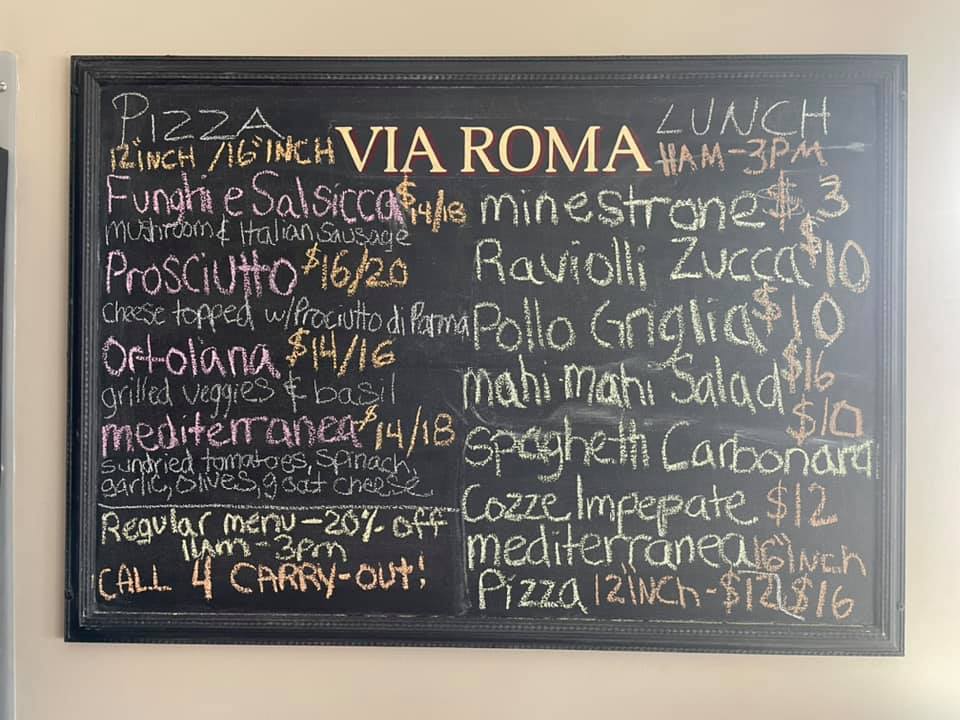 VIA ROMA
PIZZA
12"INCH / 16"INCH
Funghi e Salsicca $14/18
mushroom & Italian sausage
Prosciutto $16/20
cheese topped w/Prociutto di Parma
Ortolana $14/16
grilled veggies & basil
mediterranea $14/18
sundried tomatoes, spinach,
garlic, olives, goat cheese
Regular menu - 20% off
11am - 3pm
CALL 4 CARRY-OUT!
LUNCH
11AM - 3PM
minestrone $3
Raviolli Zucca $10
Pollo Griglia $10
mahi-mahi Salad $16
$10
Spaghetti Carbonara
Cozze Impepate $12
mediterranea 16"INCH
Pizza 12"INCH - $12, $16